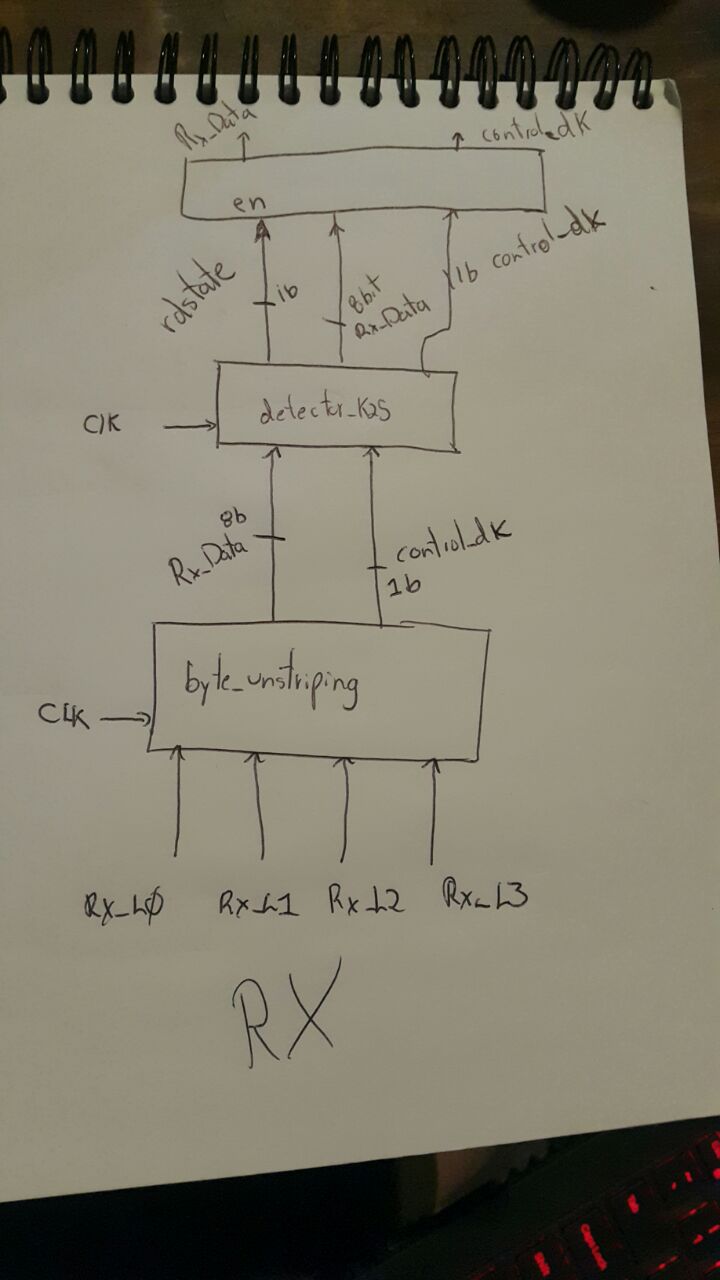 Rx_Data
control_dK
en
rdstate
1b
8bit
Rx_Data
1b control_dK
ClK
detector_K25
8b
Rx_Data
control_dK
1b
byte_unstriping
CLK
Rx_L0 Rx_L1 Rx_L2 Rx_L3
RX